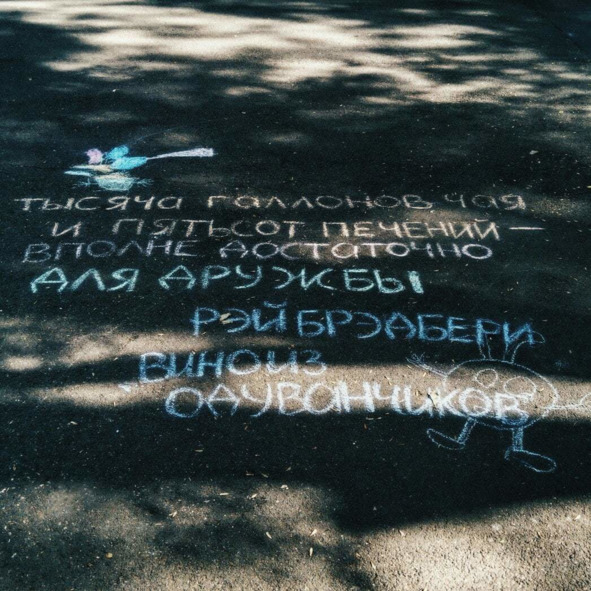 тысяча галлонов чая
и пятьсот печений —
вполне достаточно
для дружбы
Рэй Брэдбери
"Вино из
одуванчиков"